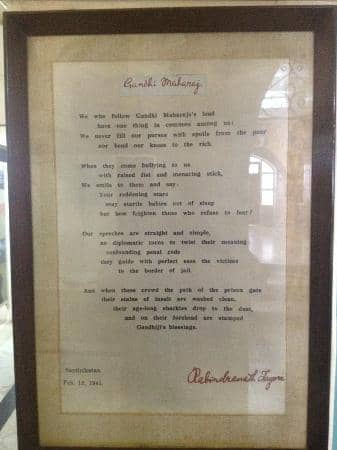 Gandhi Maharaj
We who follow Gandhi Maharaja's lead
have one thing in common among us:
We never fill our purses with spoils from the poor
nor bend our knees to the rich.
When they come bullying to us
with raised fist and menacing stick,
We smile to them and say:
Your reddening stare
may startle babies out of sleep
but how frighten those who refuse to fear?
Our speeches are straight and simple,
no diplomatic turns to twist their meaning
confounding penal code
they guide with perfect ease the victims
to the border of jail.
And when these crowd the path of the prison gate
their stains of insult are washed clean,
their age-long shackles drop to the dust,
and on their forehead are stamped
Gandhiji's blessings.
Santiniketan
Feb. 12, 1941.
Rabindranath Tagore